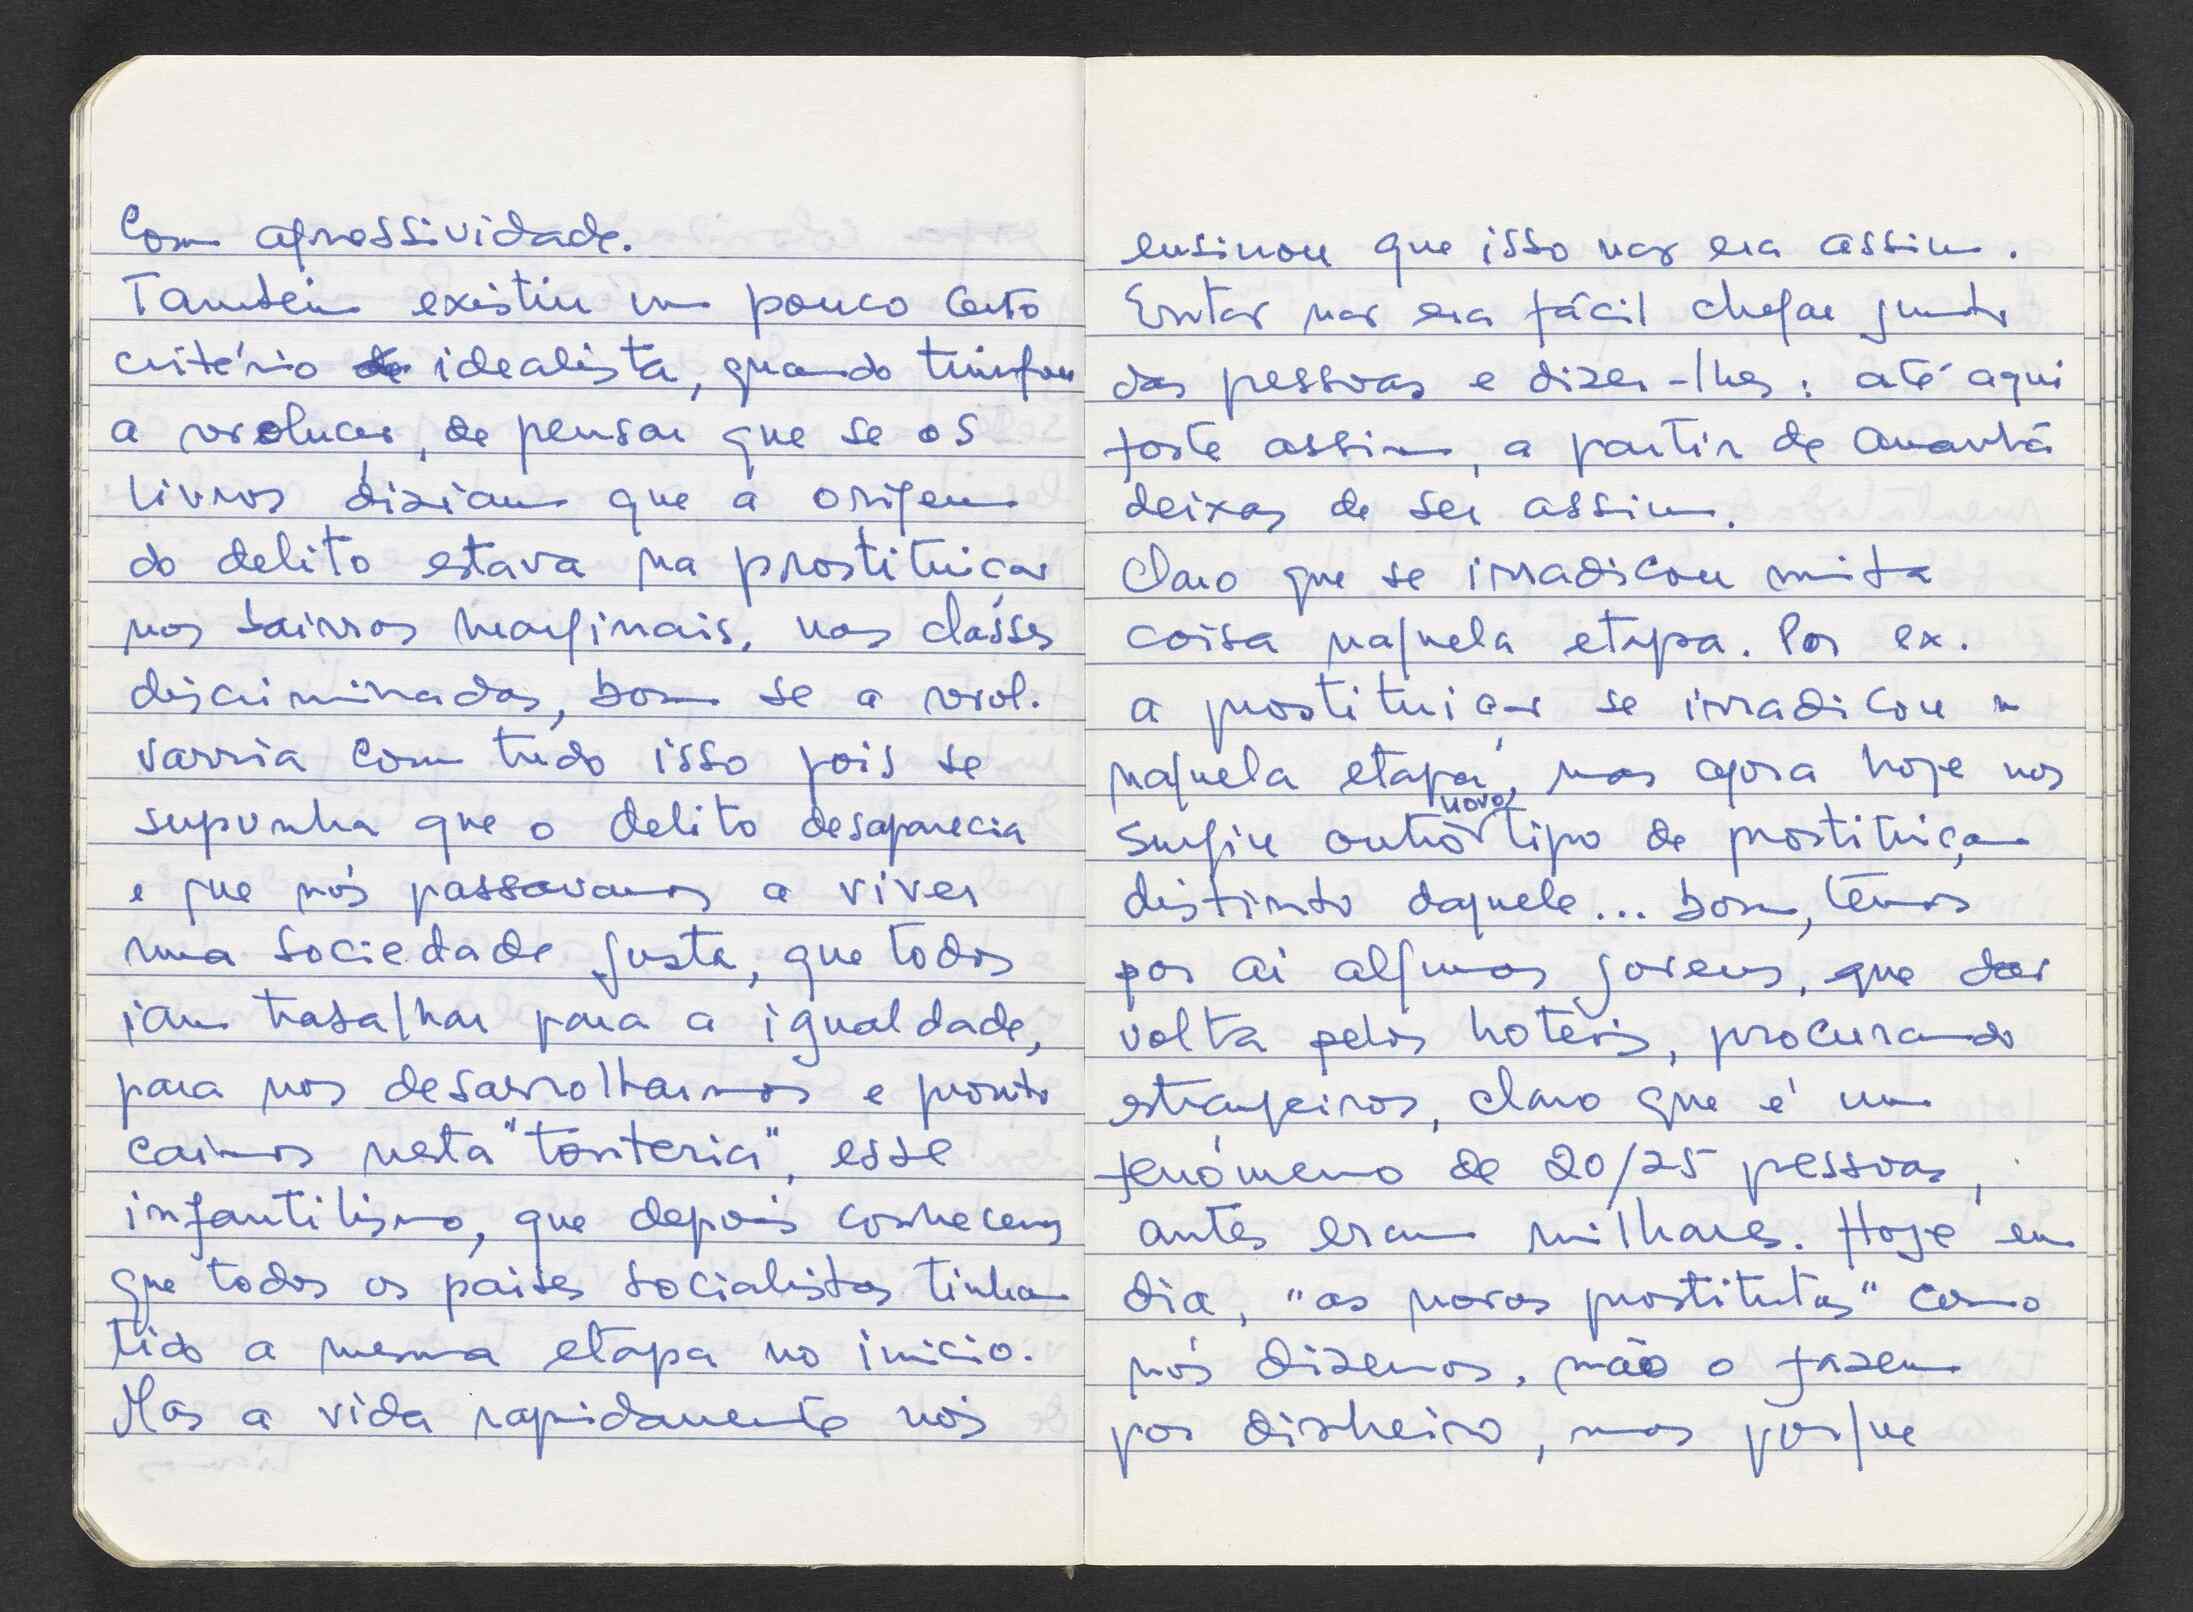 Com agressividade.
Também existiu um pouco certo
critério de idealista, quando triunfou
a revolucão, de pensar que se os
livros diziam que a origem
do delito estava na prostituição
nos bairros marginais, nas classes
discriminadas, bom se a revol.
varria com tudo isso pois se
supunha que o delito desaparecia
e que nós passavamos a viver
numa sociedade justa, que todos
iam trabalhar para a igualdade,
para nos desarrolharmos e pronto
caimos nesta "tonteria", esse
infantilismo, que depois conhecemos
que todos os paises socialistas tinham
tido a mesma etapa no inicio.
Mas a vida rapidamente nos
ensinou que isso não era assim.
Então não era fácil chegar junto
das pessoas e dizer-lhes: até aqui
foste assim, a partir de amanhã
deixas de ser assim.
Claro que se irradicou muita
coisa naquela etapa. Por ex.
a prostituição se irradicou n
naquela etapa, mas agora hoje nos
surgiu outro novo tipo de prostituição
distinto daquele... bom, temos
por ai algumas jovens, que dão
volta pelos hotéis, procurando
estrangeiros, claro que é um
fenómeno de 20/25 pessoas,
antes eram milhares. Hoje em
dia, "as novas prostitutas" como
nós dizemos, não o fazem
por dinheiro, mas porque